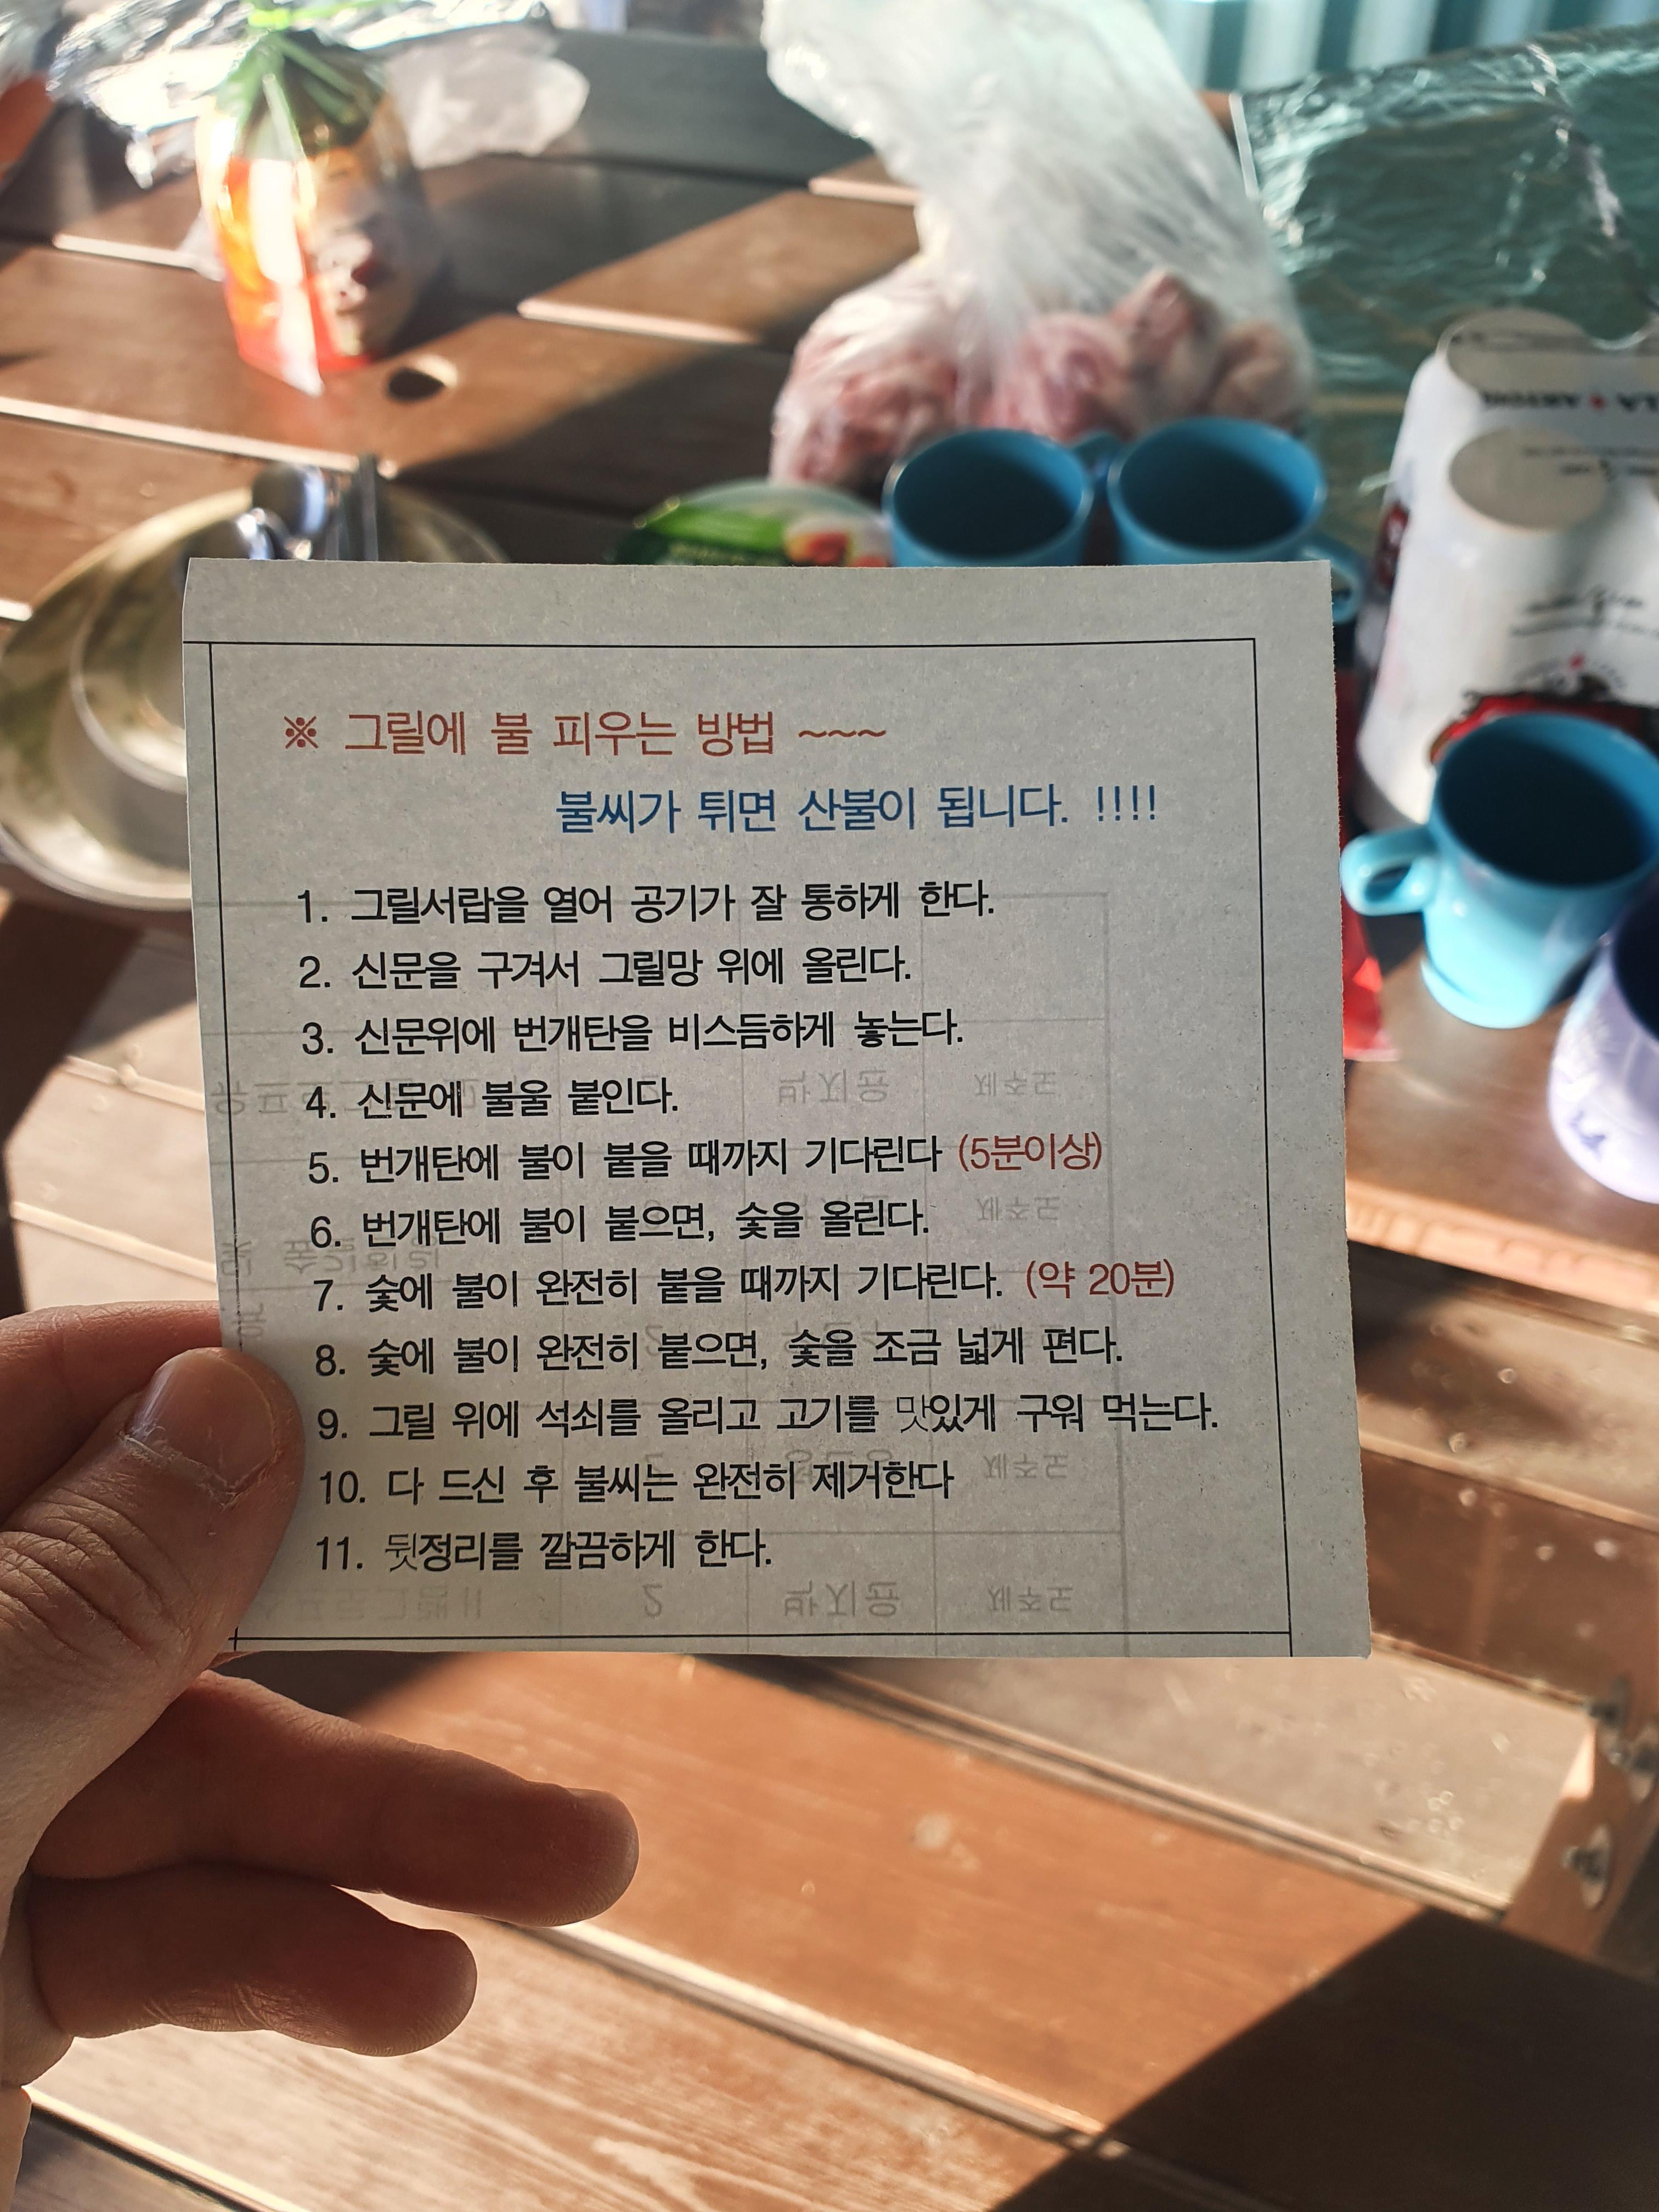 ※ 그릴에 불 피우는 방법 ~~~
불씨가 튀면 산불이 됩니다. !!!!
1. 그릴서랍을 열어 공기가 잘 통하게 한다.
2. 신문을 구겨서 그릴망 위에 올린다.
3. 신문위에 번개탄을 비스듬하게 놓는다.
4. 신문에 불울 붙인다.
5. 번개탄에 불이 붙을 때까지 기다린다 (5분이상)
6. 번개탄에 불이 붙으면, 숯을 올린다.
7. 숯에 불이 완전히 붙을 때까지 기다린다. (약 20분)
8. 숯에 불이 완전히 붙으면, 숯을 조금 넓게 편다.
9. 그릴 위에 석쇠를 올리고 고기를 맛있게 구워 먹는다.
10. 다 드신 후 불씨는 완전히 제거한다
11. 뒷정리를 깔끔하게 한다.